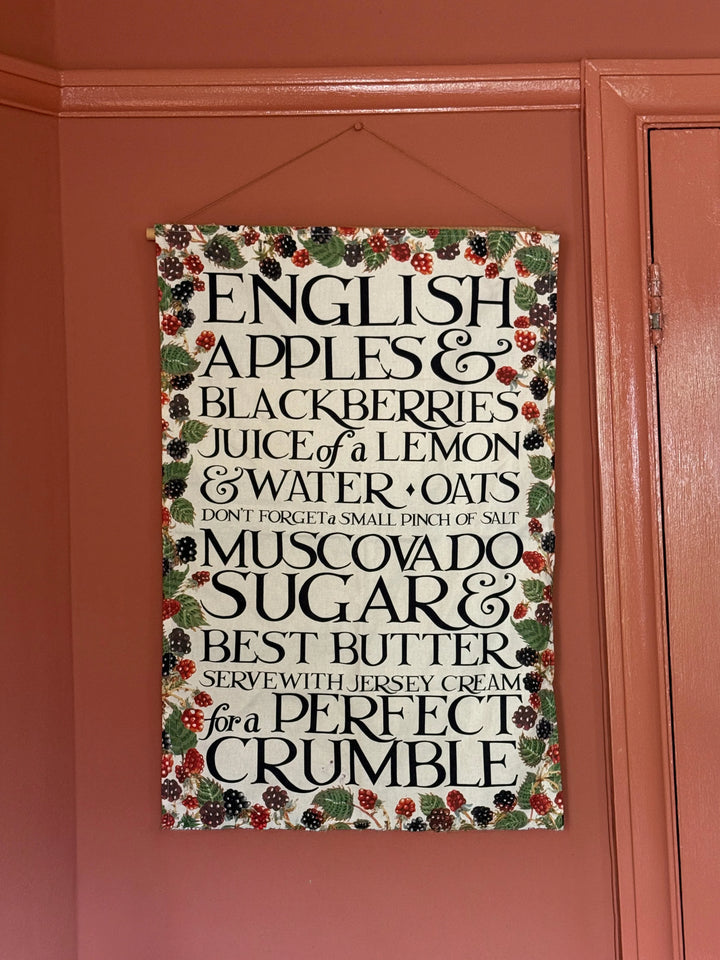 ENGLISH
APPLES &
BLACKBERRIES
JUICE of a LEMON
& WATER ♦ OATS
DON'T FORGET a SMALL PINCH OF SALT
MUSCOVADO
SUGAR &
BEST BUTTER
SERVE WITH JERSEY CREAM
for a PERFECT
CRUMBLE